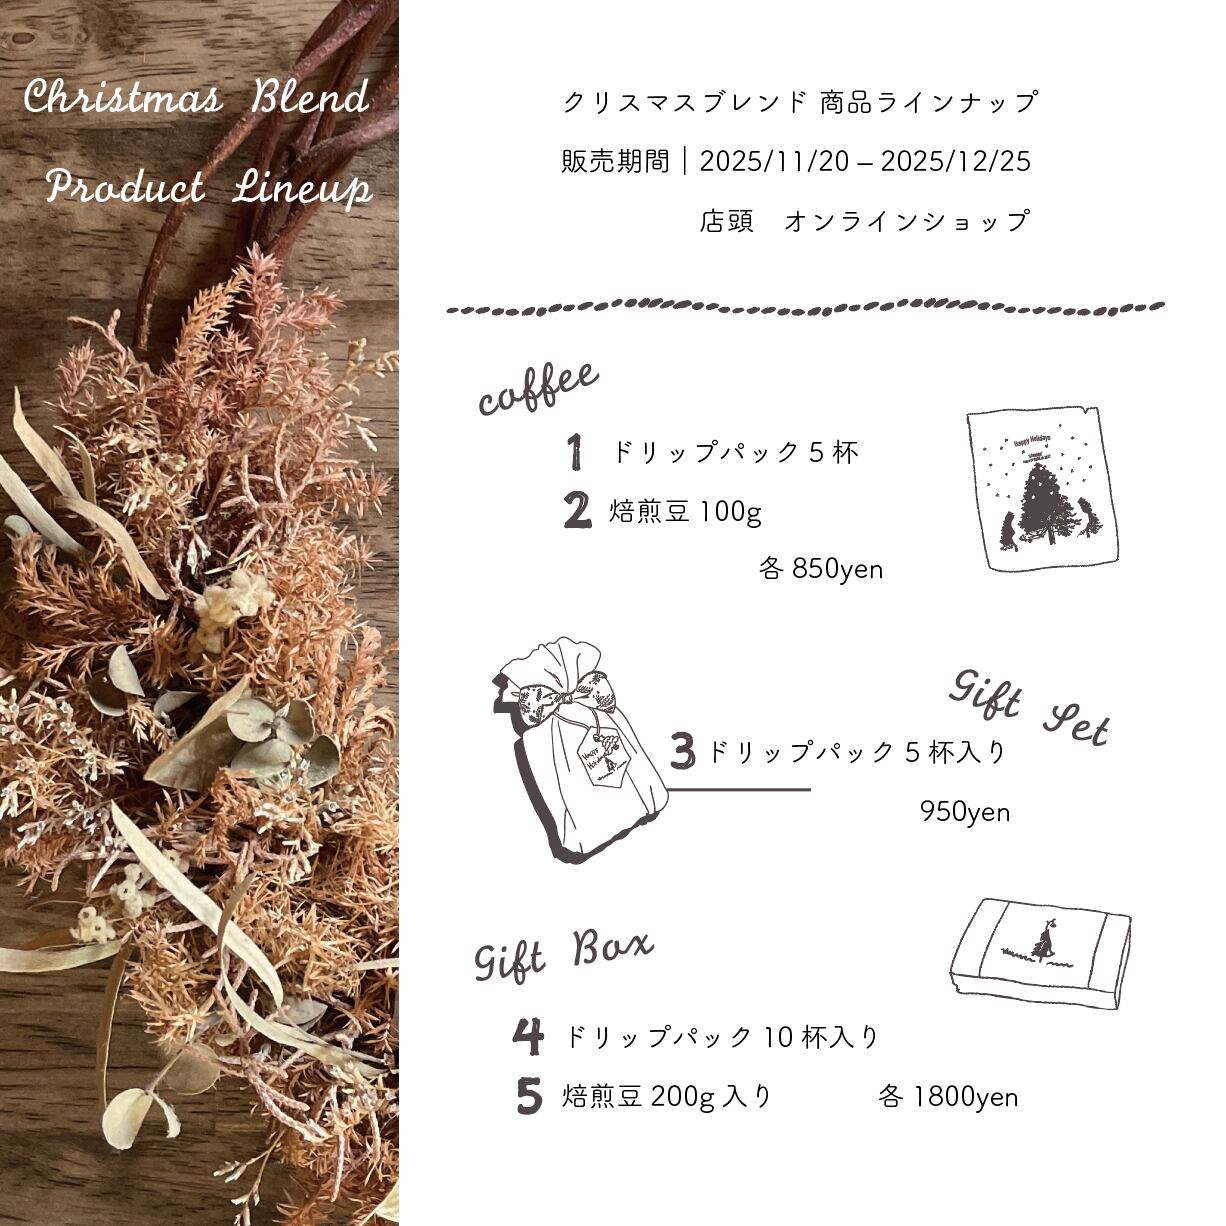 Christmas Blend
Product Lineup
クリスマスブレンド 商品ラインナップ
販売期間｜2025/11/20 – 2025/12/25
店頭　オンラインショップ
coffee
1 ドリップパック 5 杯
2 焙煎豆 100g
各 850yen
Happy Holidays
Gift Set
3 ドリップパック 5 杯入り
950yen
Happy
Gift Box
4 ドリップパック 10 杯入り
5 焙煎豆 200g 入り　各 1800yen